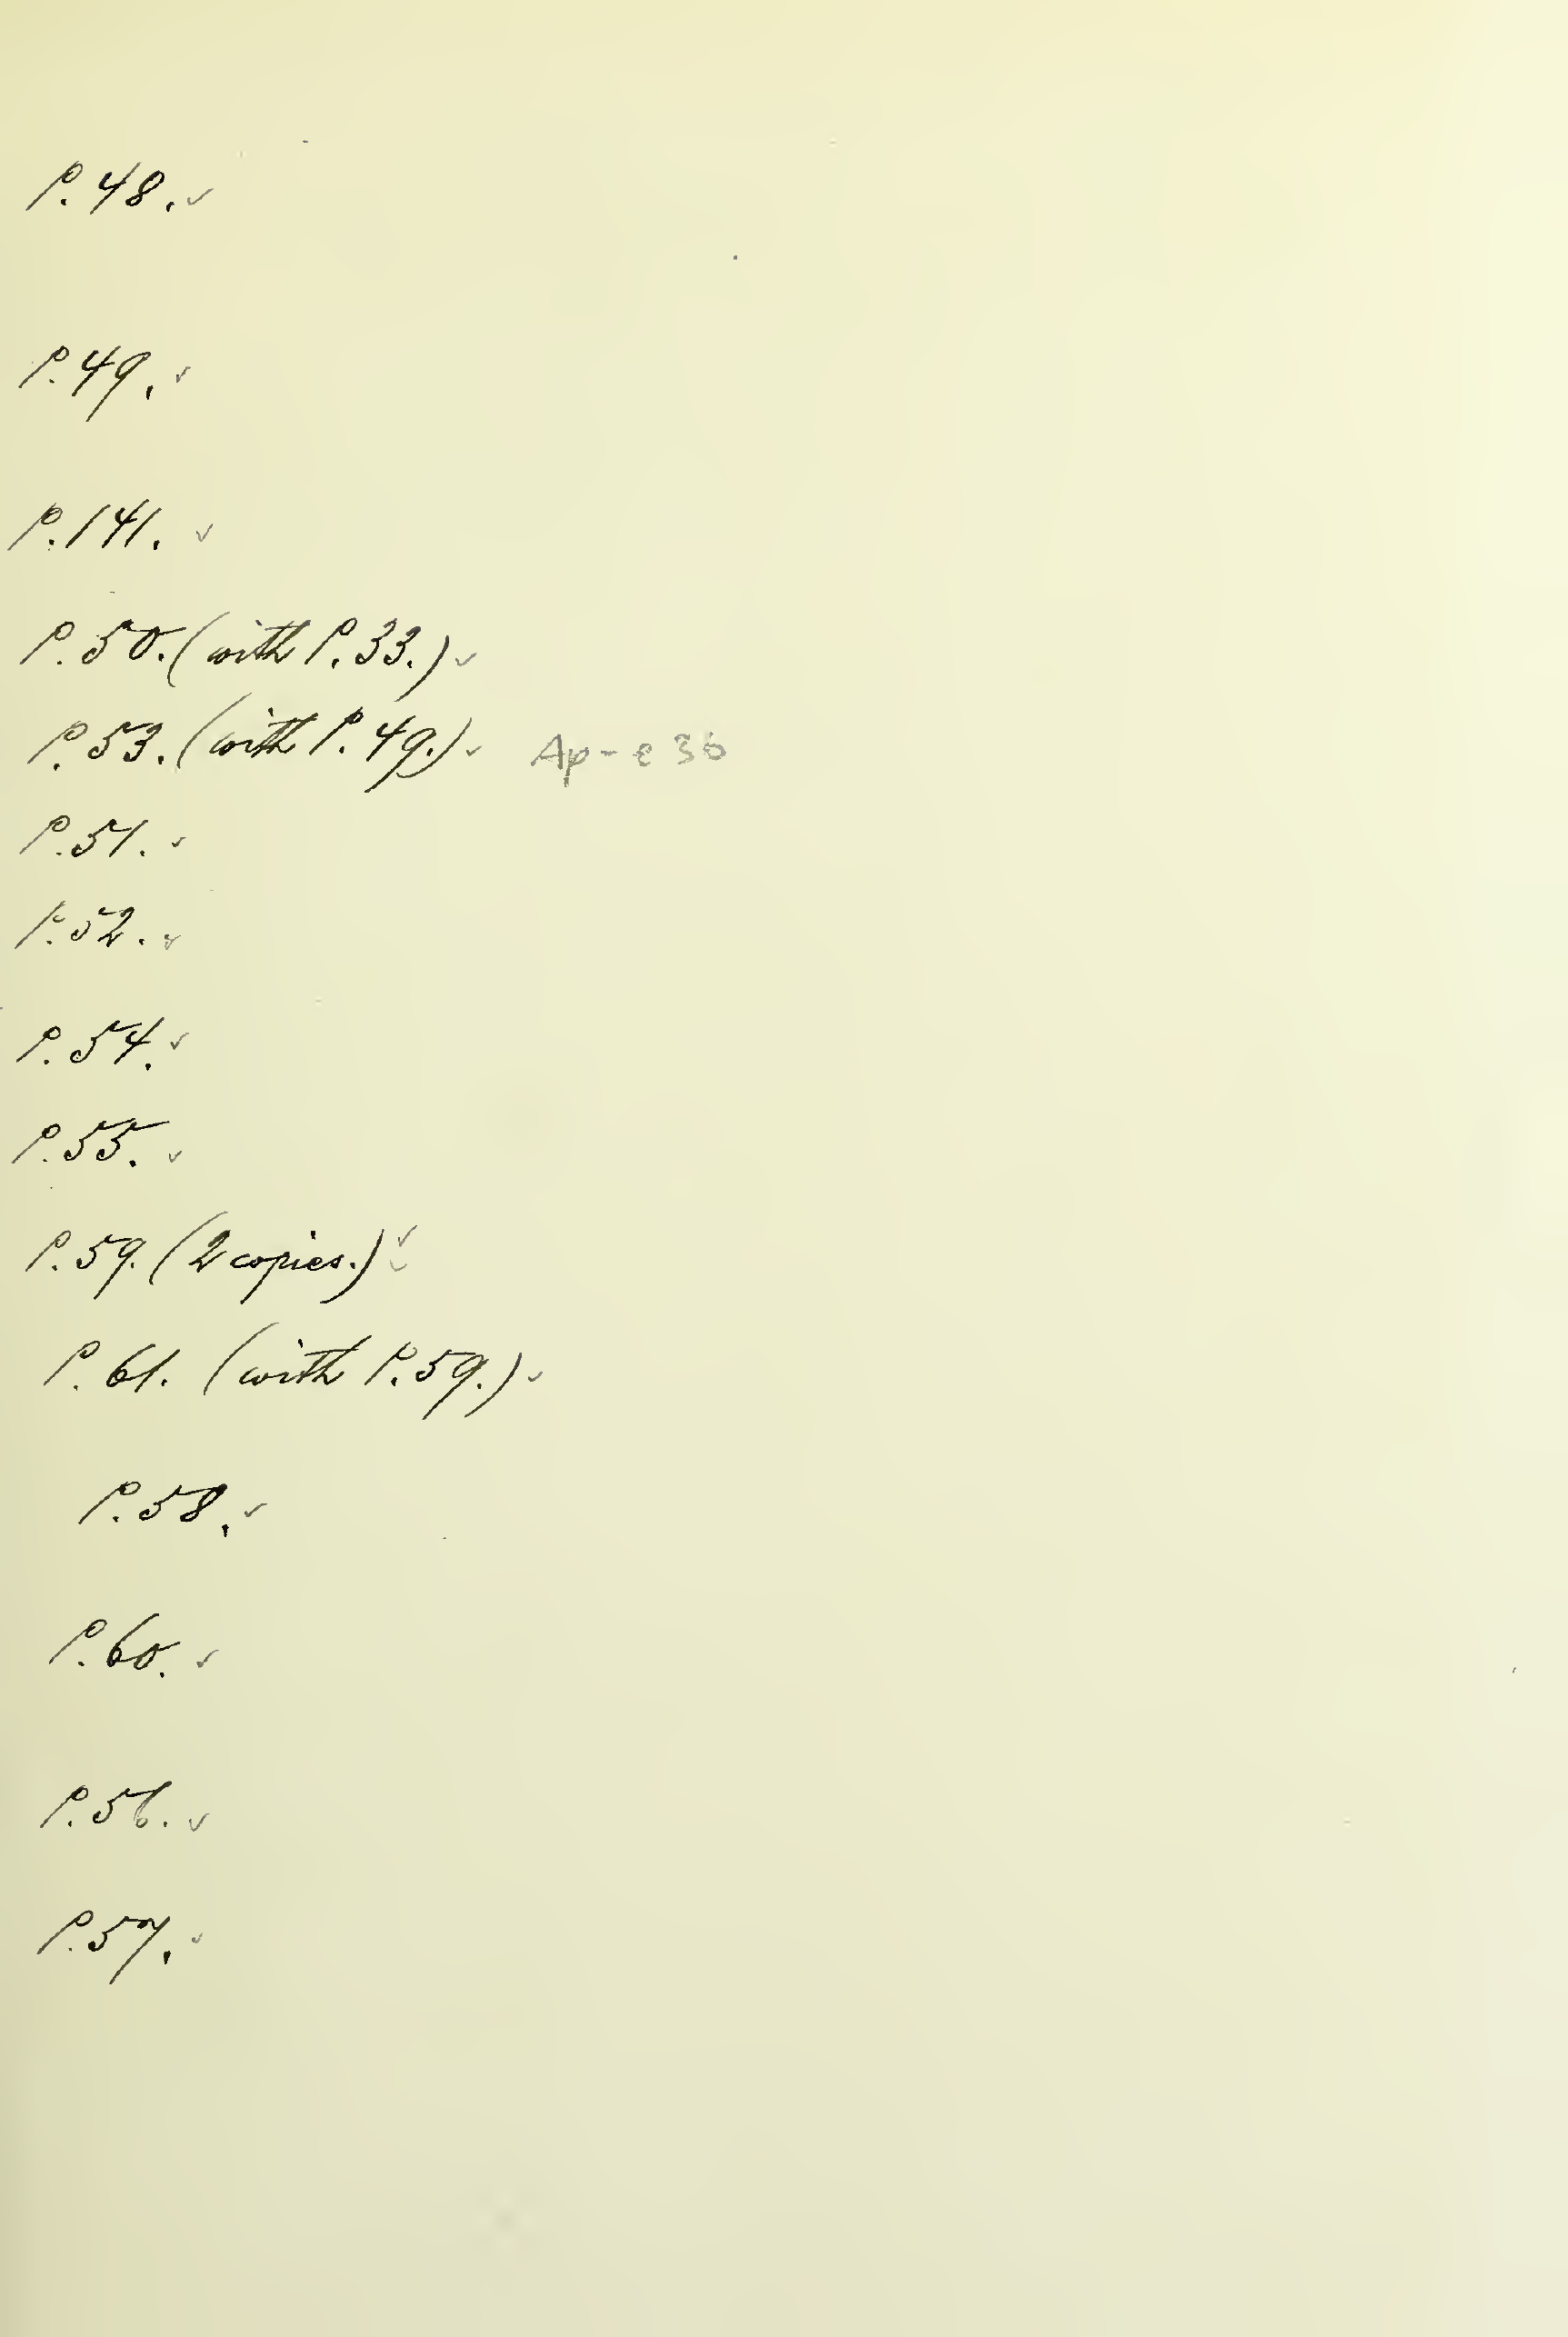 P.48. ✓
P.49. ✓
P.141. ✓
P.50. (with P.33.) ✓
P.53. (with P.49.) ✓ Ap-e 36
P.51. ✓
P.52. ✓
P.54. ✓
P.55. ✓
P.59. (2 copies.) ✓ ✓
P.61. (with P.59.) ✓
P.58. ✓
P.60. ✓
P.56. ✓
P.57. ✓